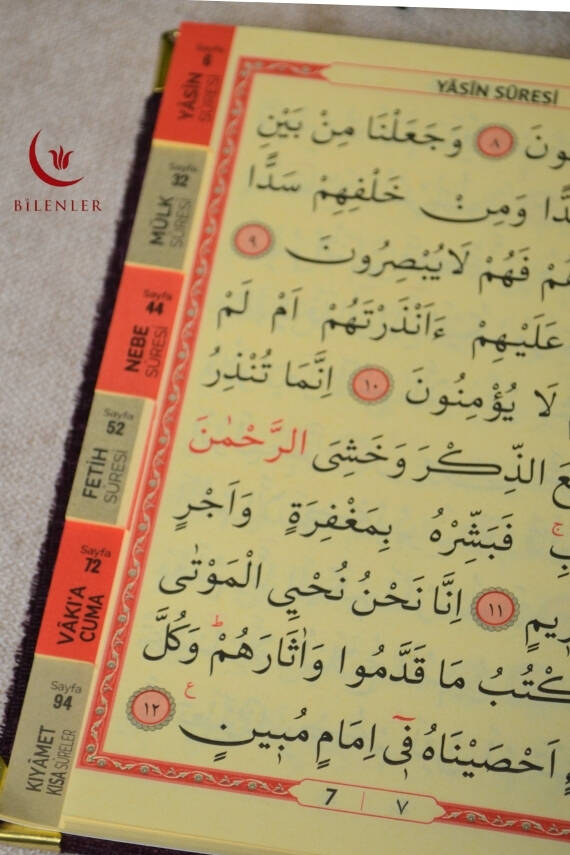 BİLENLER
Sayfa
6
YÂSÎN
SÛRESİ
Sayfa
32
MÜLK
SÛRESİ
Sayfa
44
NEBE
SÛRESİ
Sayfa
52
FETİH
SÛRESİ
Sayfa
72
VÂKI'A
CUMA
Sayfa
94
KIYÂMET
KISA SÛRELER
YÂSÎN SÛRESİ
٨ وَجَعَلْنَا مِنْ بَيْنِ
وَمِنْ خَلْفِهِمْ سَدًّا
فَهُمْ لَايُبْصِرُونَ ٩
عَلَيْهِمْ ءَاَنْذَرْتَهُمْ اَمْ لَمْ
لَا يُؤْمِنُونَ ١٠ اِنَّمَا تُنْذِرُ
الذِّكْرَ وَخَشِىَ الرَّحْمٰنَ
فَبَشِّرْهُ بِمَغْفِرَةٍ وَاَجْرٍ
١١ اِنَّا نَحْنُ نُحْيِي الْمَوْتٰى
مَا قَدَّمُوا وَاٰثَارَهُمْ ط وَكُلَّ
اَحْصَيْنَاهُ فٓى اِمَامٍ مُبٖينٍ ع ١٢
7 | ٧